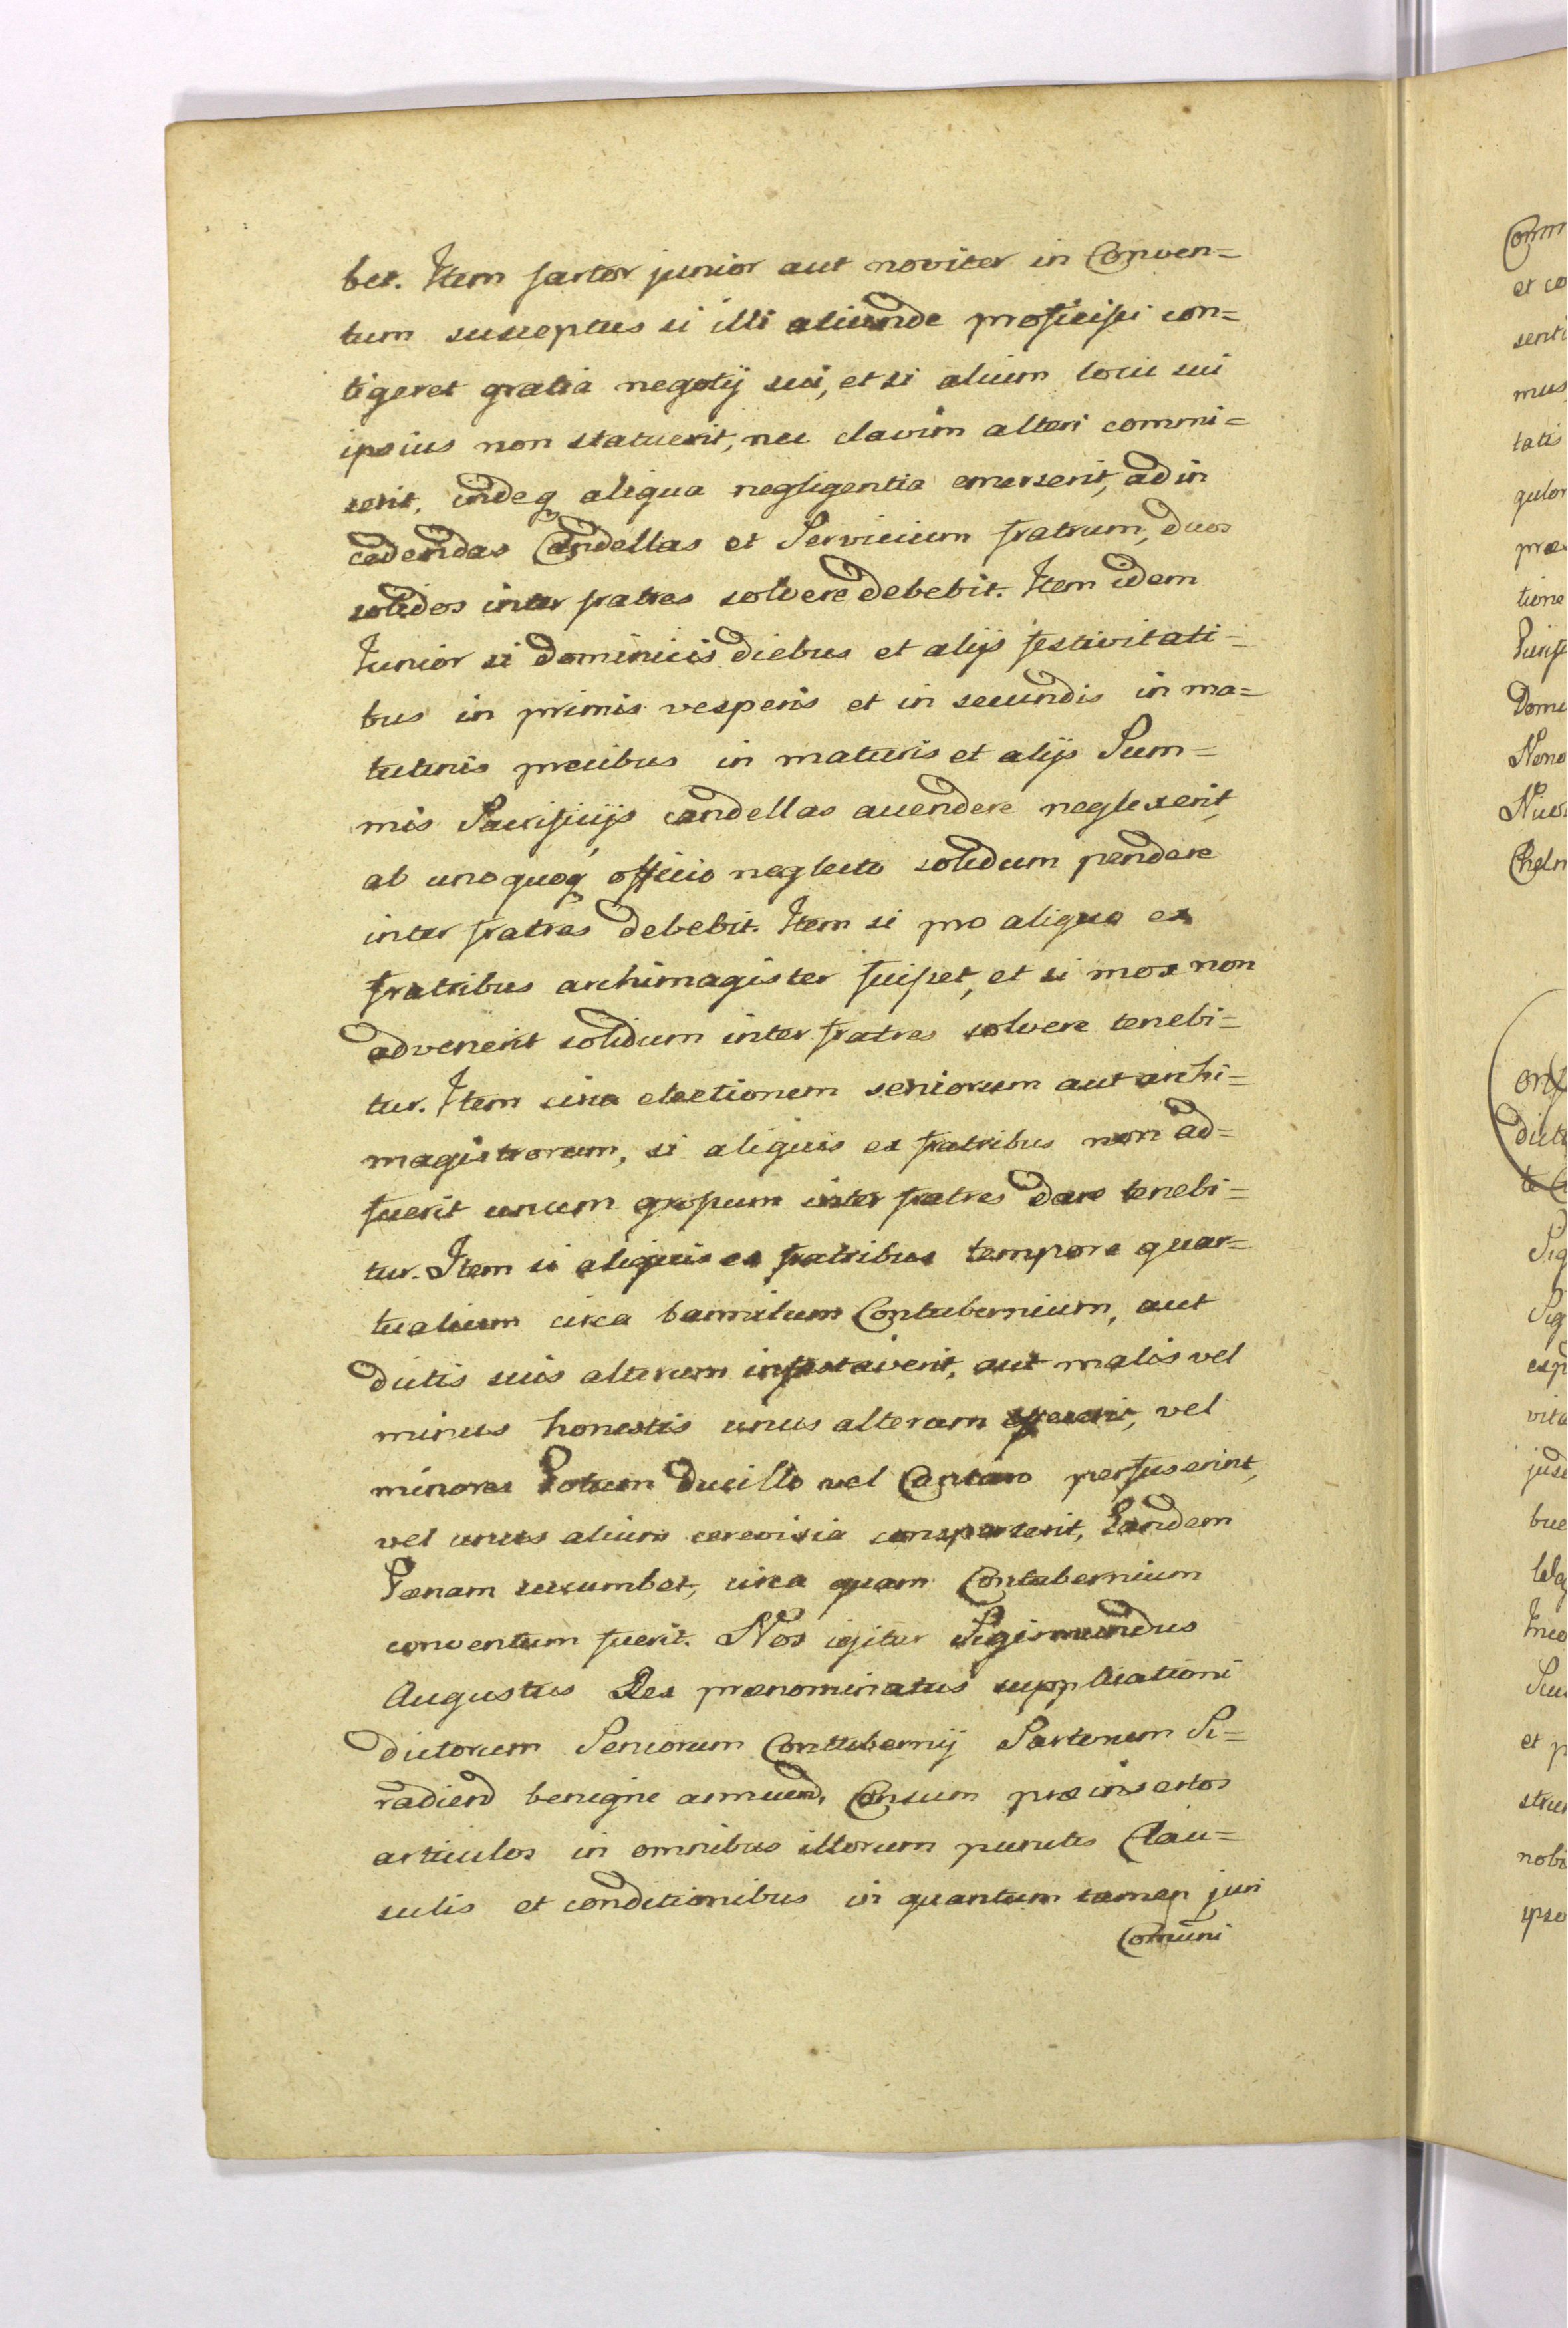 bet. Item sartor junior aut noviter in Conven=
tum susceptus si illi aliunde proficisci con=
tigeret gratia negotij sui, et si alium locu sui
ipsius non statuerit, nec clavim alteri commi=
serit, indeq aliqua negligentia emerserit, ad in
cedendas Candellas et Servicium fratrum, duos
solidos inter fratres solvere debebit. Item idem
Junior si dominicis diebus et alijs festivitati=
bus in primis vesperis et in secundis in ma=
tutinis precibus in maturis et alijs Sum=
mis Sacrificijs candellas accendere neglexerit,
ab unoquoq officio neglecto solidum pendere
inter fratres debebit. Item si pro aliquo ex
fratribus archimagister
advenerit solidum inter fratres solvere tenebi=
tur. Item circa electionem seniorum aut archi=
magistrorum, si aliquis ex fratribus non ad=
fuerit unum grossum inter fratres dare tenebi=
tur. Item si aliquis ex fratribus tempore quar=
tualium circa bannitum Contubernium, aut
dictis suis alterum infestaverit, aut malis vel
minus honestis unus alteram vel
minores Potum Ducillo vel Cantaro perfuserint,
vel unus alium cerevisia consperserit, Eandem
Pœnam succumbet, circa quam Contubernium
conventum fuerit. Nos igitur Sigismundus
Augustus Rex prænominatus supplicationi
dictorum Seniorum Contubernij Sartorum Si=
radien benigne annuend, Consum præinsertos
articulos in omnibus illorum punctis Clau=
sulis et conditionibus in quantum tamen juri
Comuni